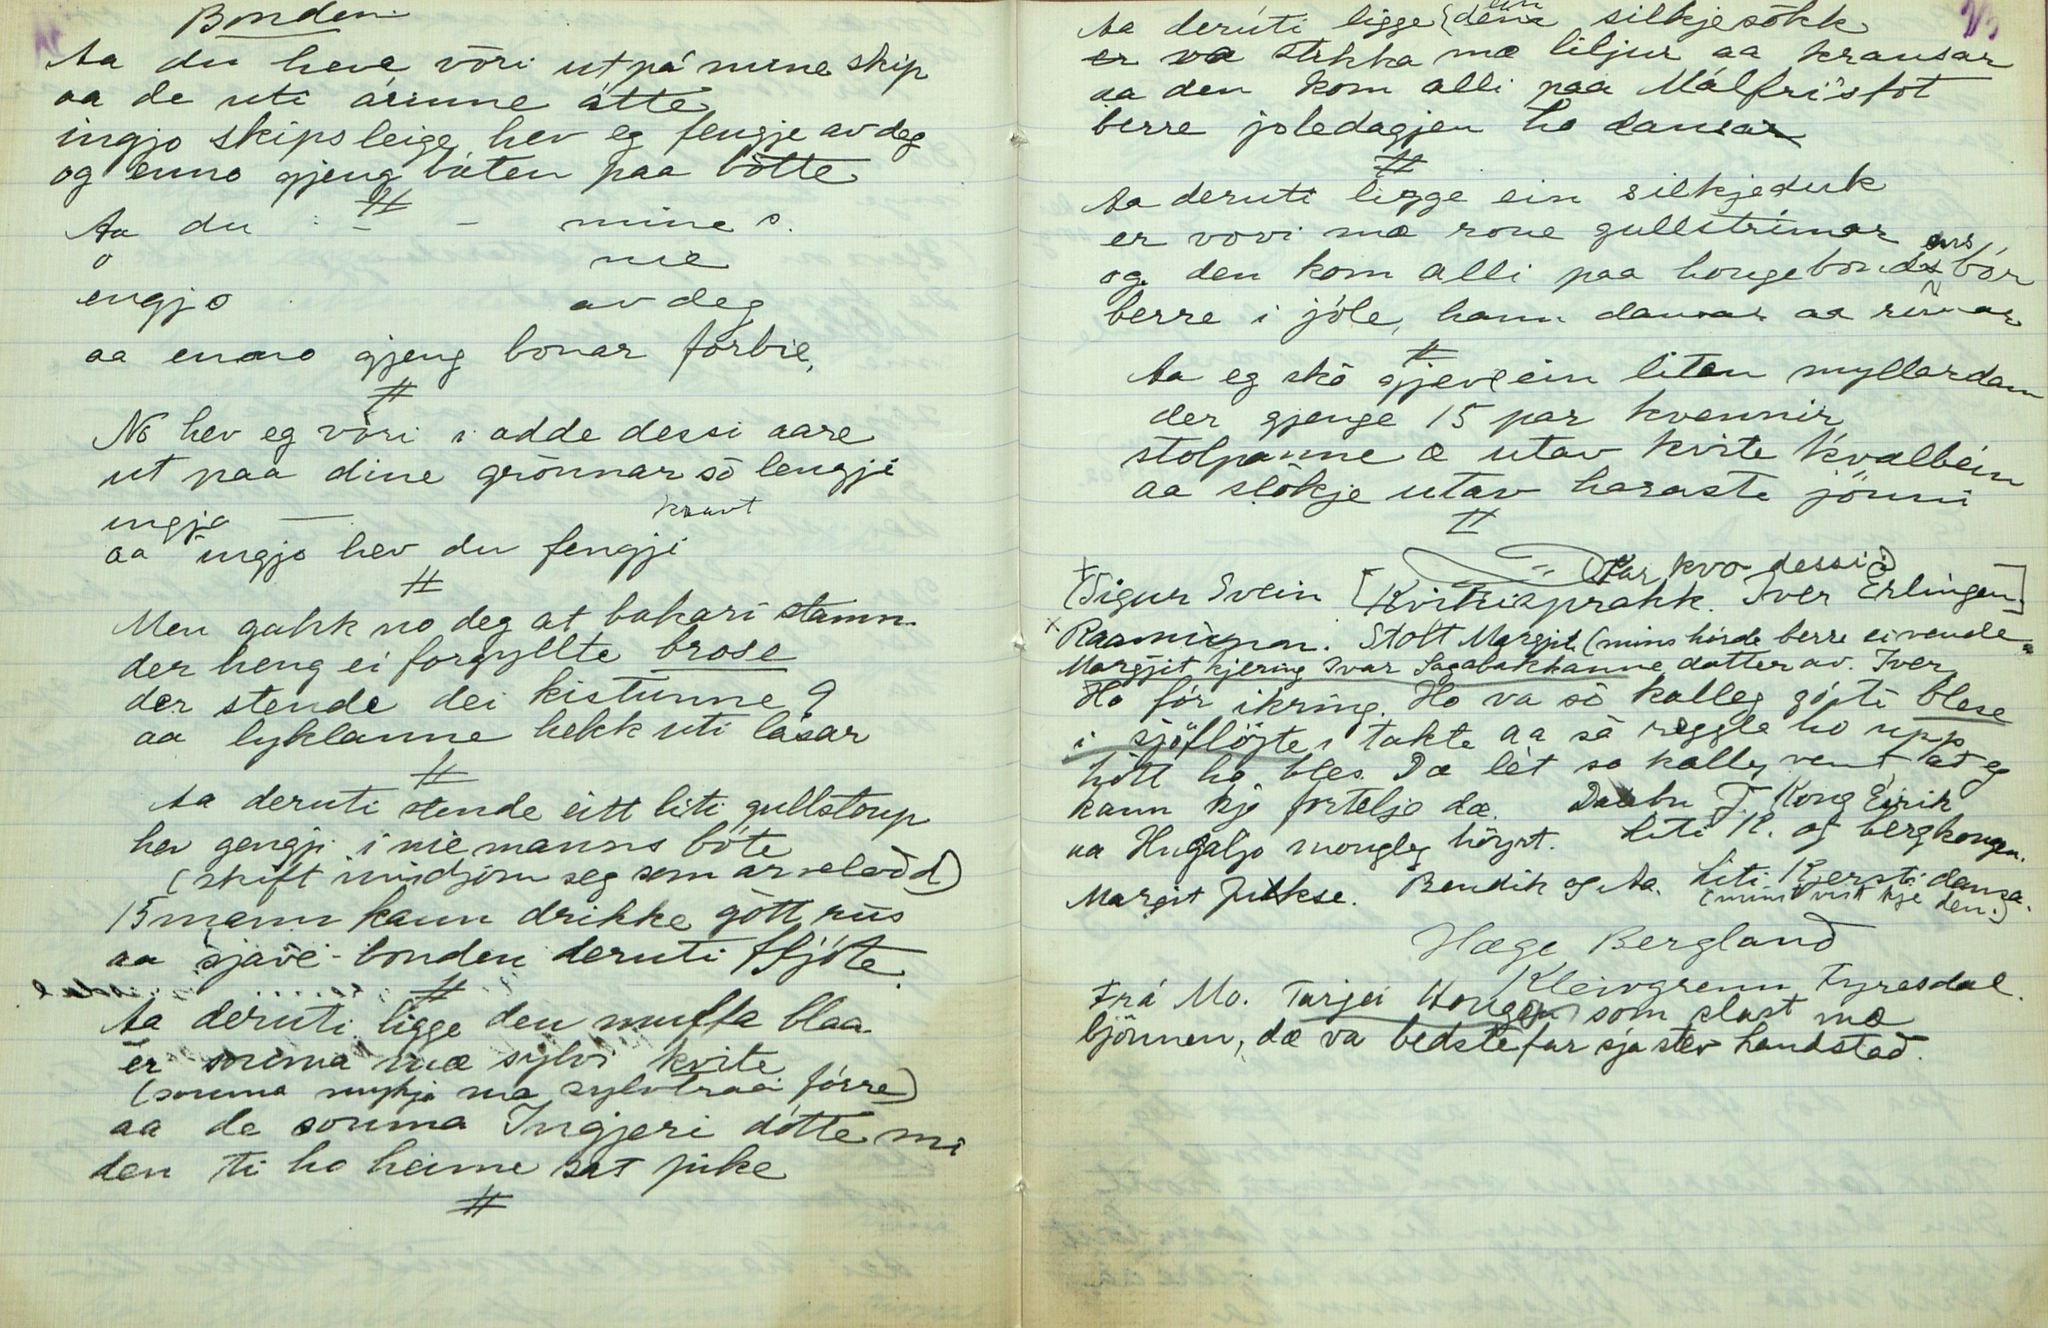 Bonden
Aa du heve vōri ut på mine skip
aa de uti árinne åtte
ingjo skipsleige hev eg fengje av deg
og enno gjeng båten paa bōtte
#
Aa du - - mine s.
o nie
engjo av deg
aa enno gjeng bonar fórbie,
#
No hev eg vōri i adde dessi aare
ut paa dine grōnnar sō lengji
ingjo — kravt
aa ingjo hev du fengji
#
Men gakk no deg at bakari stamn
der heng ei forgyllte brose
der stende dei kistunne 9
aa lyklanne hekk uti låsar
#
Aa deruti stende eitt liti gullstoup
hev gengji i nie manns bóte
(skift
15 mann kann drikke gōtt rús
aa sjave-bonden deruti fljóte.
#
Aa deruti ligge den muffa blaa
er souma mæ sylvi kvite
(souma mykje mæ sylvtraai fórre)
aa de souma Ingjeri dótte mi
den ti ho heime sat pike
#
Aa derúti ligge {den ein silkjesōkk
er va stikka mæ liljur aa kransar
aa den kom alli paa Målfri's fot
berre joledagjen ho dansar
#
Aa deruti ligge ein silkjeduk
er vovi mæ roue gullstrimar
og den kom alli paa hougebondens bór
berre i jóle, hann dansar aa rimar
#
Aa eg skō gjeve ein liten myllardam
der gjenge 15 par kvennir
stolpanne æ utav kvite kvalbein
aa slōkje utav haraste jönni
#
(Kar kvo dessi)
+ (Sigur Svein [Kvikkisprakk. Iver Erlingen.]
x Raamunn. Stolt Margjit (mins hórde berre ei vende
Margjit kjering Ivar Sagabakkanne datter av. Iver,
Ho fór ikring. Ho va sō kalleg góti blese
i sjöflöjte i takte aa så reggla ho upp
hōtt ho bles. Dæ lèt so kalleg vent at eg
kann kje fortelje dæ. Daabu T. Kong Eirik
aa Hugaljo mongleg hōyrt. Liti K. og bergkongen.
Margit Julkse. Bendik og Aa. Liti Kersti dansa.
(mins visst kje den.)
Hæge Bergland
Kleivgrenn Fyresdal.
Frá Mo. Tarjei Hougen som slast mæ
bjönnen, dæ va bedstefar sjå stev handstad.